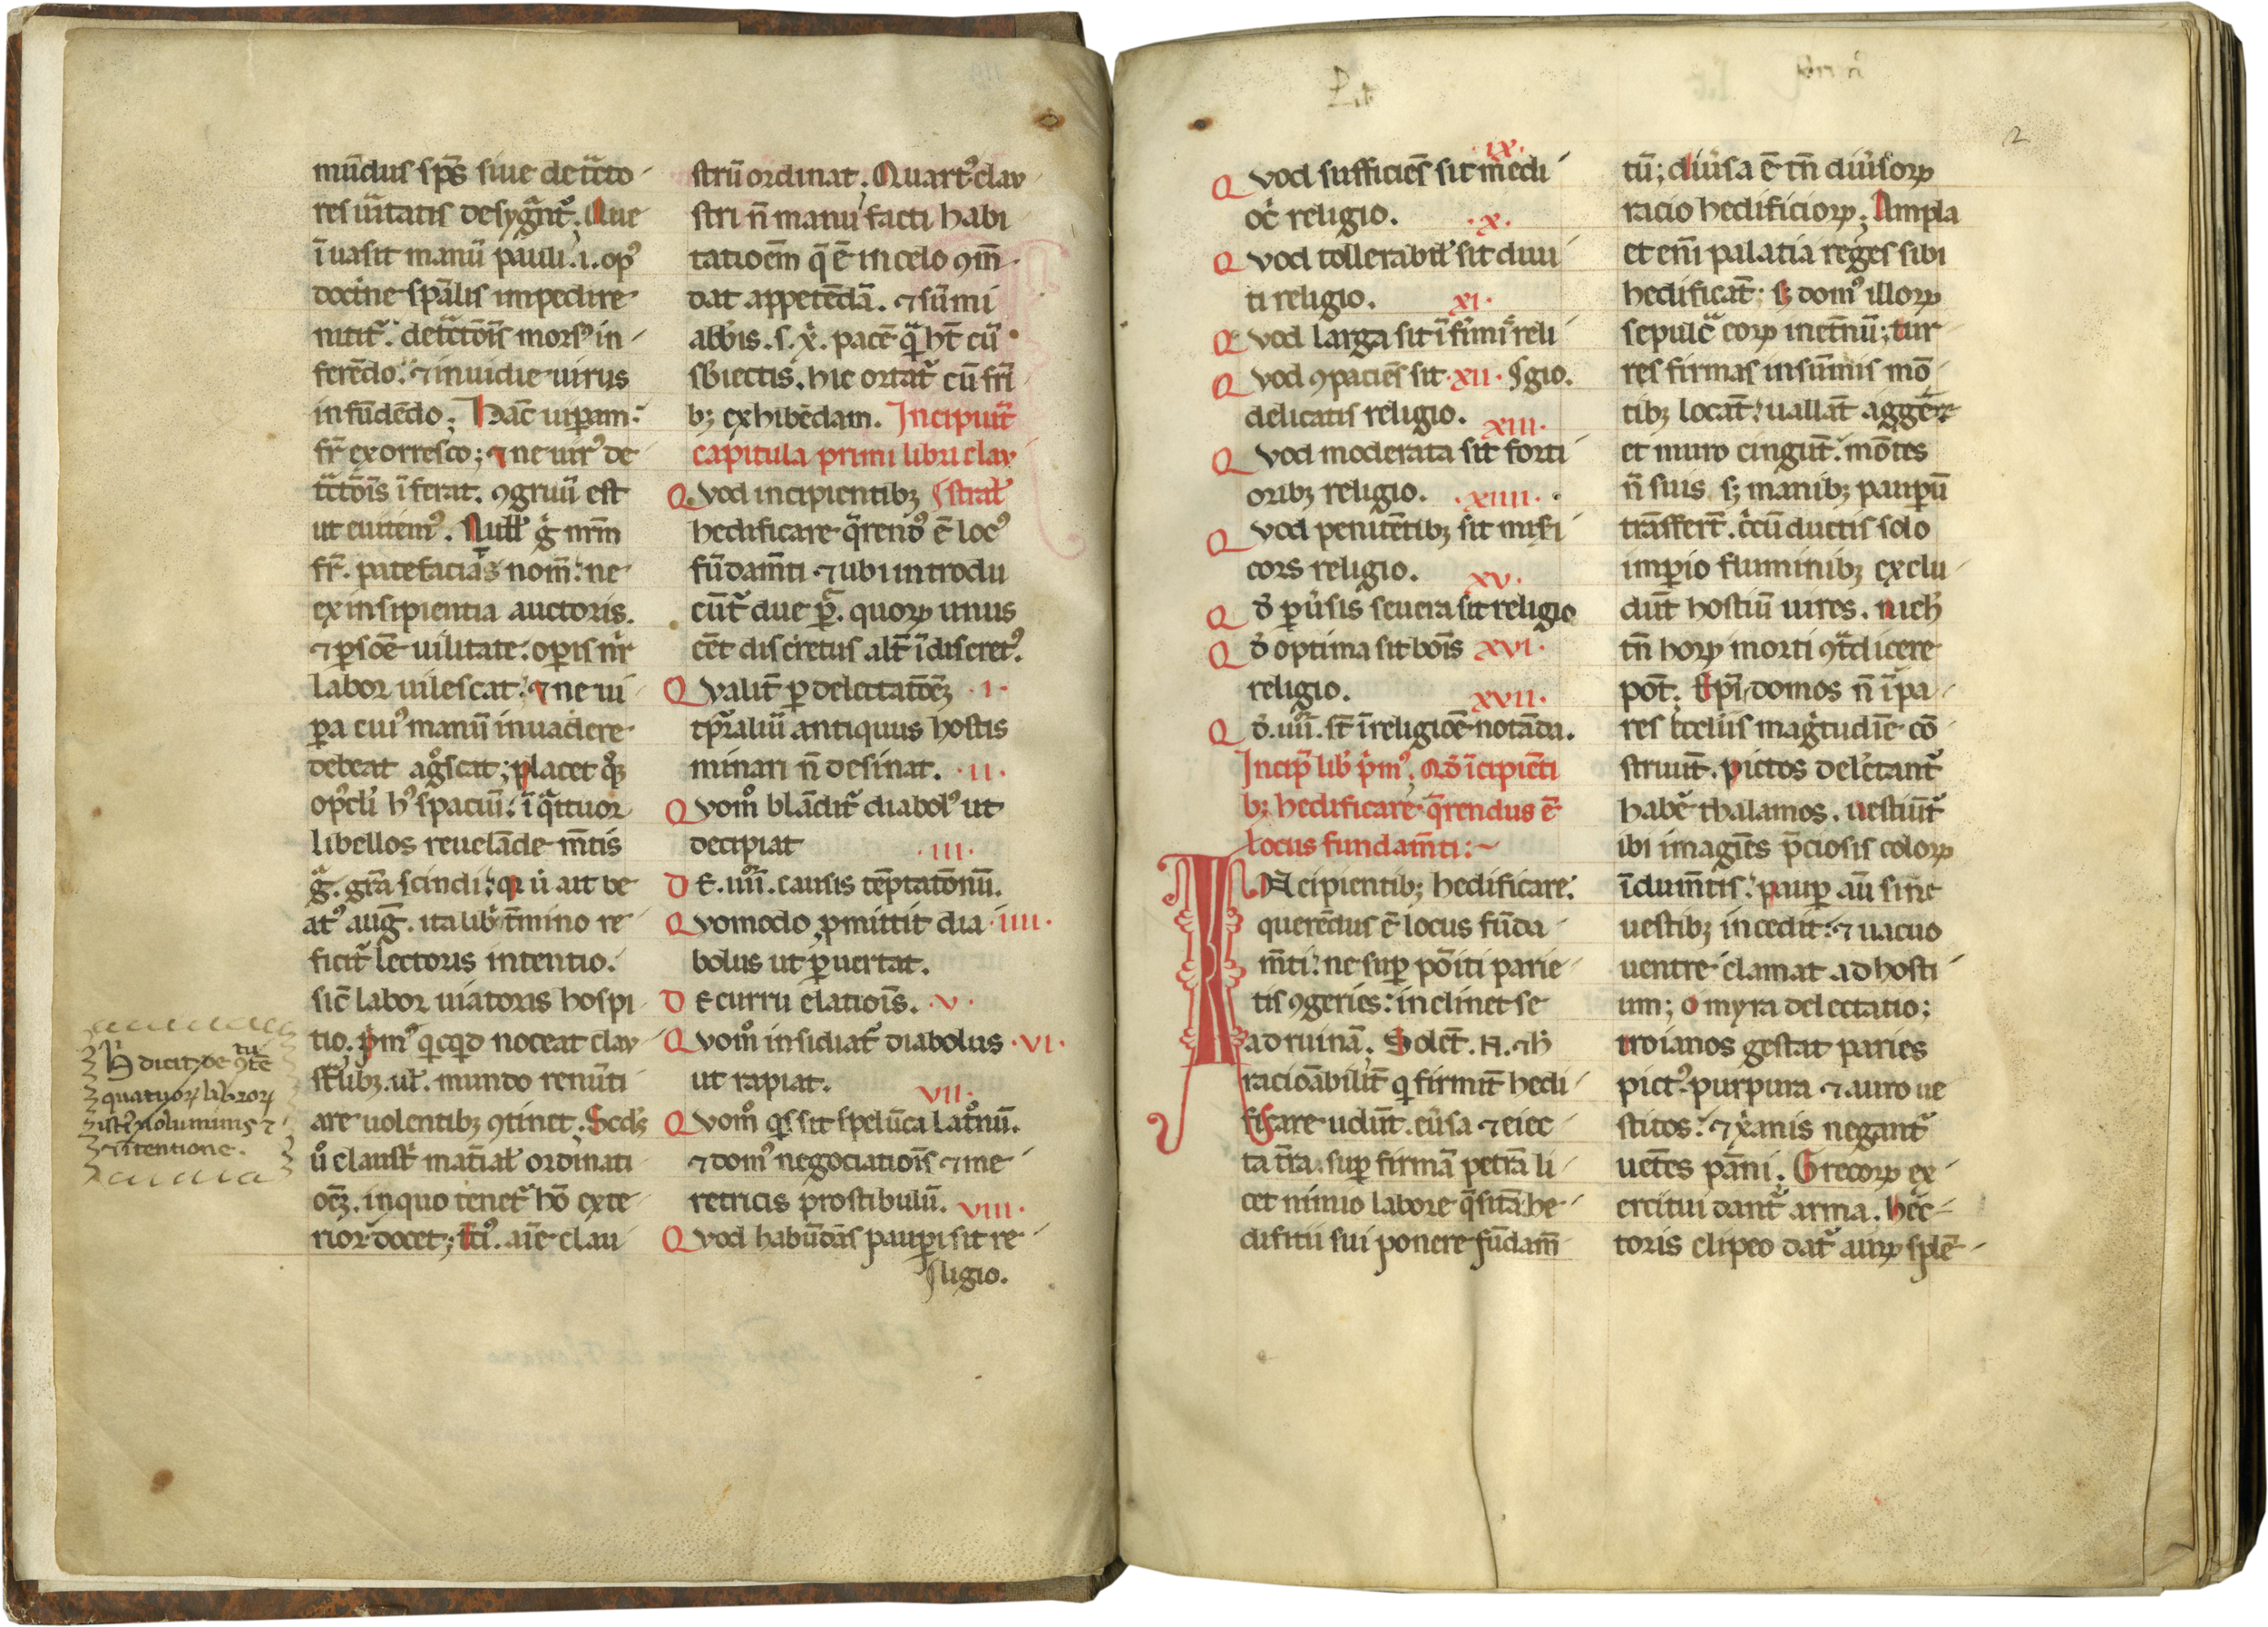 mūdus sp̄s siue detͣcto
res uitatis desygͣntͬ. Que
īuasit manū pauli .i. opꝰ
doctͥne spālis impedire
nititͬ. detͣctōis morsꝰ in
ferēdo. ⁊ inuidie uirus
infūdēdo. Hāc uipam.
fr̄ exorresco; ⁊ ne uirꝰ de
tͣctōis īferat. ꝯgruū est
ut euitemꝰ. Null gͦ nr̄m
fr̄. patefacias nom̄. ne
ex insipientia auctoris.
⁊ ꝑsōe uilitate. opis nr̄i
labor uilescat. ⁊ ne ui
ꝑa cuiꝰ manū inuadere
debeat agͦscat; placet
hꝰ spaciū. ī qͣttuor
libellos reuelāde m̄tis
gͣ. gr̄a scindi. ut ait be
atꝰ auḡ. ita libͥ t̄mino re
ficitͬ lectoris intentio.
sic̄ labor uiatoris hospi
tio. pͥmꝰ qͥcqͥd noceat clau
stͣlibꝫ. ul̄. mundo renūti
are uolentibꝫ ꝯtinet. Scd's
uͦ claustͥ mat̄ial' ordinati
oēꝫ. in quo tenetͬ hō exte
rior docet; t̄ciꝰ. aīe clau
H̄ dicit de ꝯtē tu
quatuorꝝ librorꝝ
istiꝰ uoluminis ⁊
⁊ ītentione.
strū ordinat. Quartꝰ clau
stri n̄ manu facti habi
tatioēm q̄ ē in celo ꝯm̄
dat appetēdā. ⁊ sūmi
abb̄is .s. x̄. pacē qͣ ht̄ cū
sb̄iectis. hic ortatͬ cū fr̄i
bꝫ exhibēdam. Incipiūt
capitula primi libri clau
Qvod incipientibꝫ stral'
hedificare qͣrendꝰ ē locꝰ
fūdam̄ti ⁊ ubi introdu
cūtͬ due ꝑ. quorꝝ unus
cēt discretus alt̄ īdiscretꝰ.
Qvalit̄ ꝑ delectatōēꝫ .i.
tp̄raliū antiquus hostis
minari n̄ desinat. .ii.
Qvomͦ blādit̄ diabolꝰ ut
decipiat .iii.
DE .iiii. causis tēptatōnū.
Qvomodo ꝓmittit dia .iiii.
bolus ut ꝑuertat.
DE curru elatiois̄. .v.
Qvomͦ insidiatͬ diabolus .vi.
ut rapiat. vii.
Qvomͦ qͥs sit spelūca latͦnū.
⁊ domꝰ negociatiois̄ ⁊ me
retricis prostibulū. viii.
Qvod habūdās paupi sit re
ligio.
2
.ix.
Qvod sufficiēs sit medi
ocͥ religio. .x.
Qvod tollerabil' sit diui
ti religio. xi.
Qvod larga sit īfirmͥ reli
Qvod ꝯpaciēs sit .xii. gio.
delicatis religio. xiii.
Qvod moderata sit forti
oribꝫ religio. .xiiii.
Qvod penitētibꝫ sit misi
cors religio. xv.
Qd̄ ꝑuersis seuera sit religio
Qd̄ optima sit bois̄ xvi.
religio. xvii.
Qd̄ .uii. st̄ ī religiōe notāda.
Incip̄ lib' pͥmꝰ. Qd̄ īcipiēti
bꝫ hedificare qͣrendus ē
locus fundam̄ti:~
INcipientibꝫ hedificare.
querēdus ē locus fūda
m̄ti. ne suꝑ pōiti parie
tis ꝯgeries. inclinet se
ad ruinā. Solēt. N. ⁊ h̄
racioābilit̄ qͥ firmit̄ hedi
ficare uidūt. eu̇sa ⁊ eiec
ta t̄ra. suꝑ firmā petrā li
cet nimio labore qͣsitā he
difitii sui ponere fūdam̄
tū; diu̇sa ē tn̄ diu̇sorꝝ
racio hedificiorꝝ. Ampla
et eni̅ palatia reges sibi
hedificāt. sꝫ domꝰ illorꝝ
sepulcͣ eorꝝ inet̄nū; tur
res firmas in sūmis mō
tibꝫ locāt. uallāt aggēre
et muro cingūt. mōtes
n̄ suis sꝫ manibꝫ paupū
trāsffert̄. cͥcū ductis solo
imꝑio fluminibꝫ exclu
dūt hostiū uires. nich'
tn̄ horꝝ morti ꝯtͣdicere
pōt. Ep̄i domos n̄ īpa
res eccl'iis magͥtudīe cō
struūt. pictos delectantͬ
habē thalamos. uestiūtͬ
ibi imagiēs p̄ciosis colorꝝ
īdum̄tis. paup aū sine
uestibꝫ incedit. ⁊ uacuo
uentre clamat ad hosti
um; o myra delectatio;
troianos gestat paries
pictꝰ purpura ⁊ auro ue
stitos. ⁊ x̄anis negantͬ
uetēs pāni. Grecorꝝ ex
ercitui dantͬ arma. hec
toris clipeo datͬ aurꝝ splē